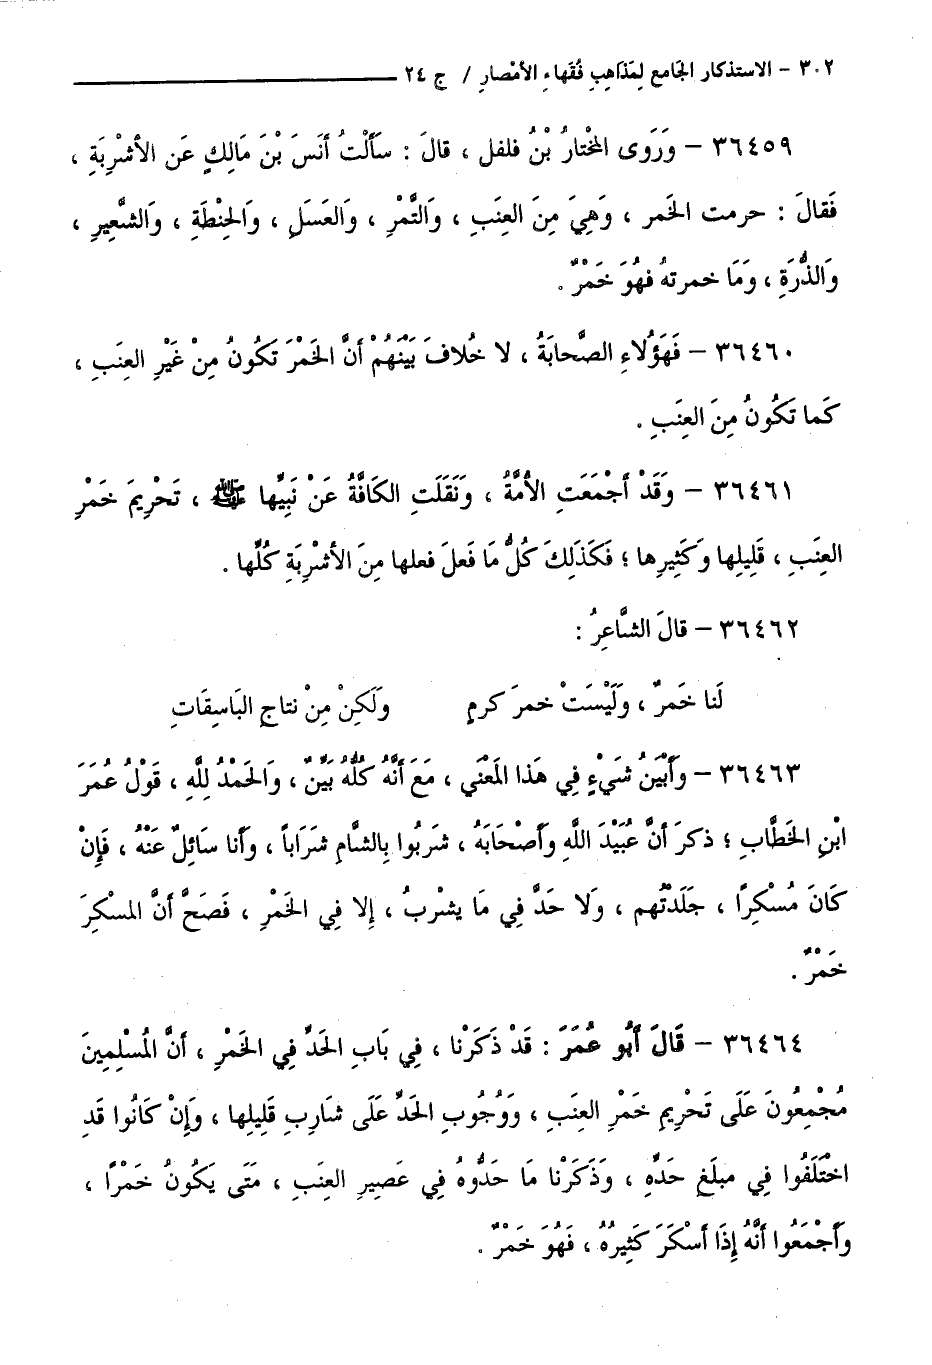 ٣٠٢ - الاستذكار الجامع لمَذاهِبِ فُقَهاءِ الأمْصارِ / ج ٢٤
٣٦٤٥٩ - ورَوَى المخْتارُ بْنُ فلفل ، قالَ : سَأَلْتُ أنَسَ بْنَ مَالِكٍ عَنِ الأشْرِبَةِ ،
فَقالَ : حرمت الخَمر ، وَهِيَ مِنَ العِنَبِ ، والتَّمْرِ ، والعَسَلِ ، والحِنْطَةِ ، والشَّعِيرِ ،
والذُّرَةِ ، ومَا خمرتهُ فهُوَ خَمْرٌ .
٣٦٤٦٠ - فَهَؤُلاءِ الصَّحابَةُ ، لا خُلافَ بَيْنَهُمْ أنَّ الخَمْرَ تَكُونُ مِنْ غَيْرِ العِنَبِ ،
كَما تَكُونُ مِنَ العِنَبِ .
٣٦٤٦١ - وقَدْ أجْمَعَتِ الأمَّةُ ، ونَقَلَتِ الكَافَّةُ عَنْ نَبِيِّها ﷺ ، تَحْرِيمَ خَمْرِ
العِنَبِ ، قَلِيلِها وكَثِيرِها ؛ فكَذلِكَ كُلُّ مَا فَعلَ فعلها مِنَ الأشْرِبَةِ كُلِّها .
٣٦٤٦٢ - قالَ الشَّاعِرُ :
لَنا خَمرٌ ، ولَيْسَتْ خمرَ كرمٍ ولَكِنْ مِنْ نتاجِ البَاسِقَاتِ
٣٦٤٦٣ - وأبْيَنُ شَيْءٍ فِي هَذا المَعْنَي ، مَعَ أنَّهُ كُلُّهُ بَيِّنٌ ، والحَمْدُ لِلَّهِ ، قَوْلُ عُمَرَ
ابْنِ الخَطَّابِ ؛ ذكرَ أنَّ عُبَيْدَ اللَّهِ وأصْحَابَهُ ، شَربُوا بِالشَّامِ شرَاباً ، وأنا سَائِلٌ عَنْهُ ، فَإنْ
كَانَ مُسْكِرًا ، جَلَدْتُهم ، ولا حَدَّ فِي مَا يشْربُ ، إلا فِي الخَمْرِ ، فَصَحَّ أنَّ المسْكِرَ
خَمْرٌ .
٣٦٤٦٤ - قَالَ أبُو عُمَرَ : قَدْ ذَكَرْنا ، فِي بَابِ الحَدِّ فِي الخَمْرِ ، أنَّ المُسْلِمِينَ
مُجْمِعُونَ عَلَى تَحْرِيمِ خَمْرِ العِنَبِ ، ووُجُوبِ الحَدِّ عَلَى شارِبِ قَلِيلِها ، وإنْ كَانُوا قَدِ
اخْتَلَفُوا فِي مبلَغِ حَدِّهِ ، وذَكَرْنا مَا حَدُّوهُ فِي عَصِيرِ العِنَبِ ، مَتَى يَكُونُ خَمْراً ،
وأجْمَعُوا أنَّهُ إذَا أسْكَرَ كَثِيرُهُ ، فَهُوَ خَمْرٌ .